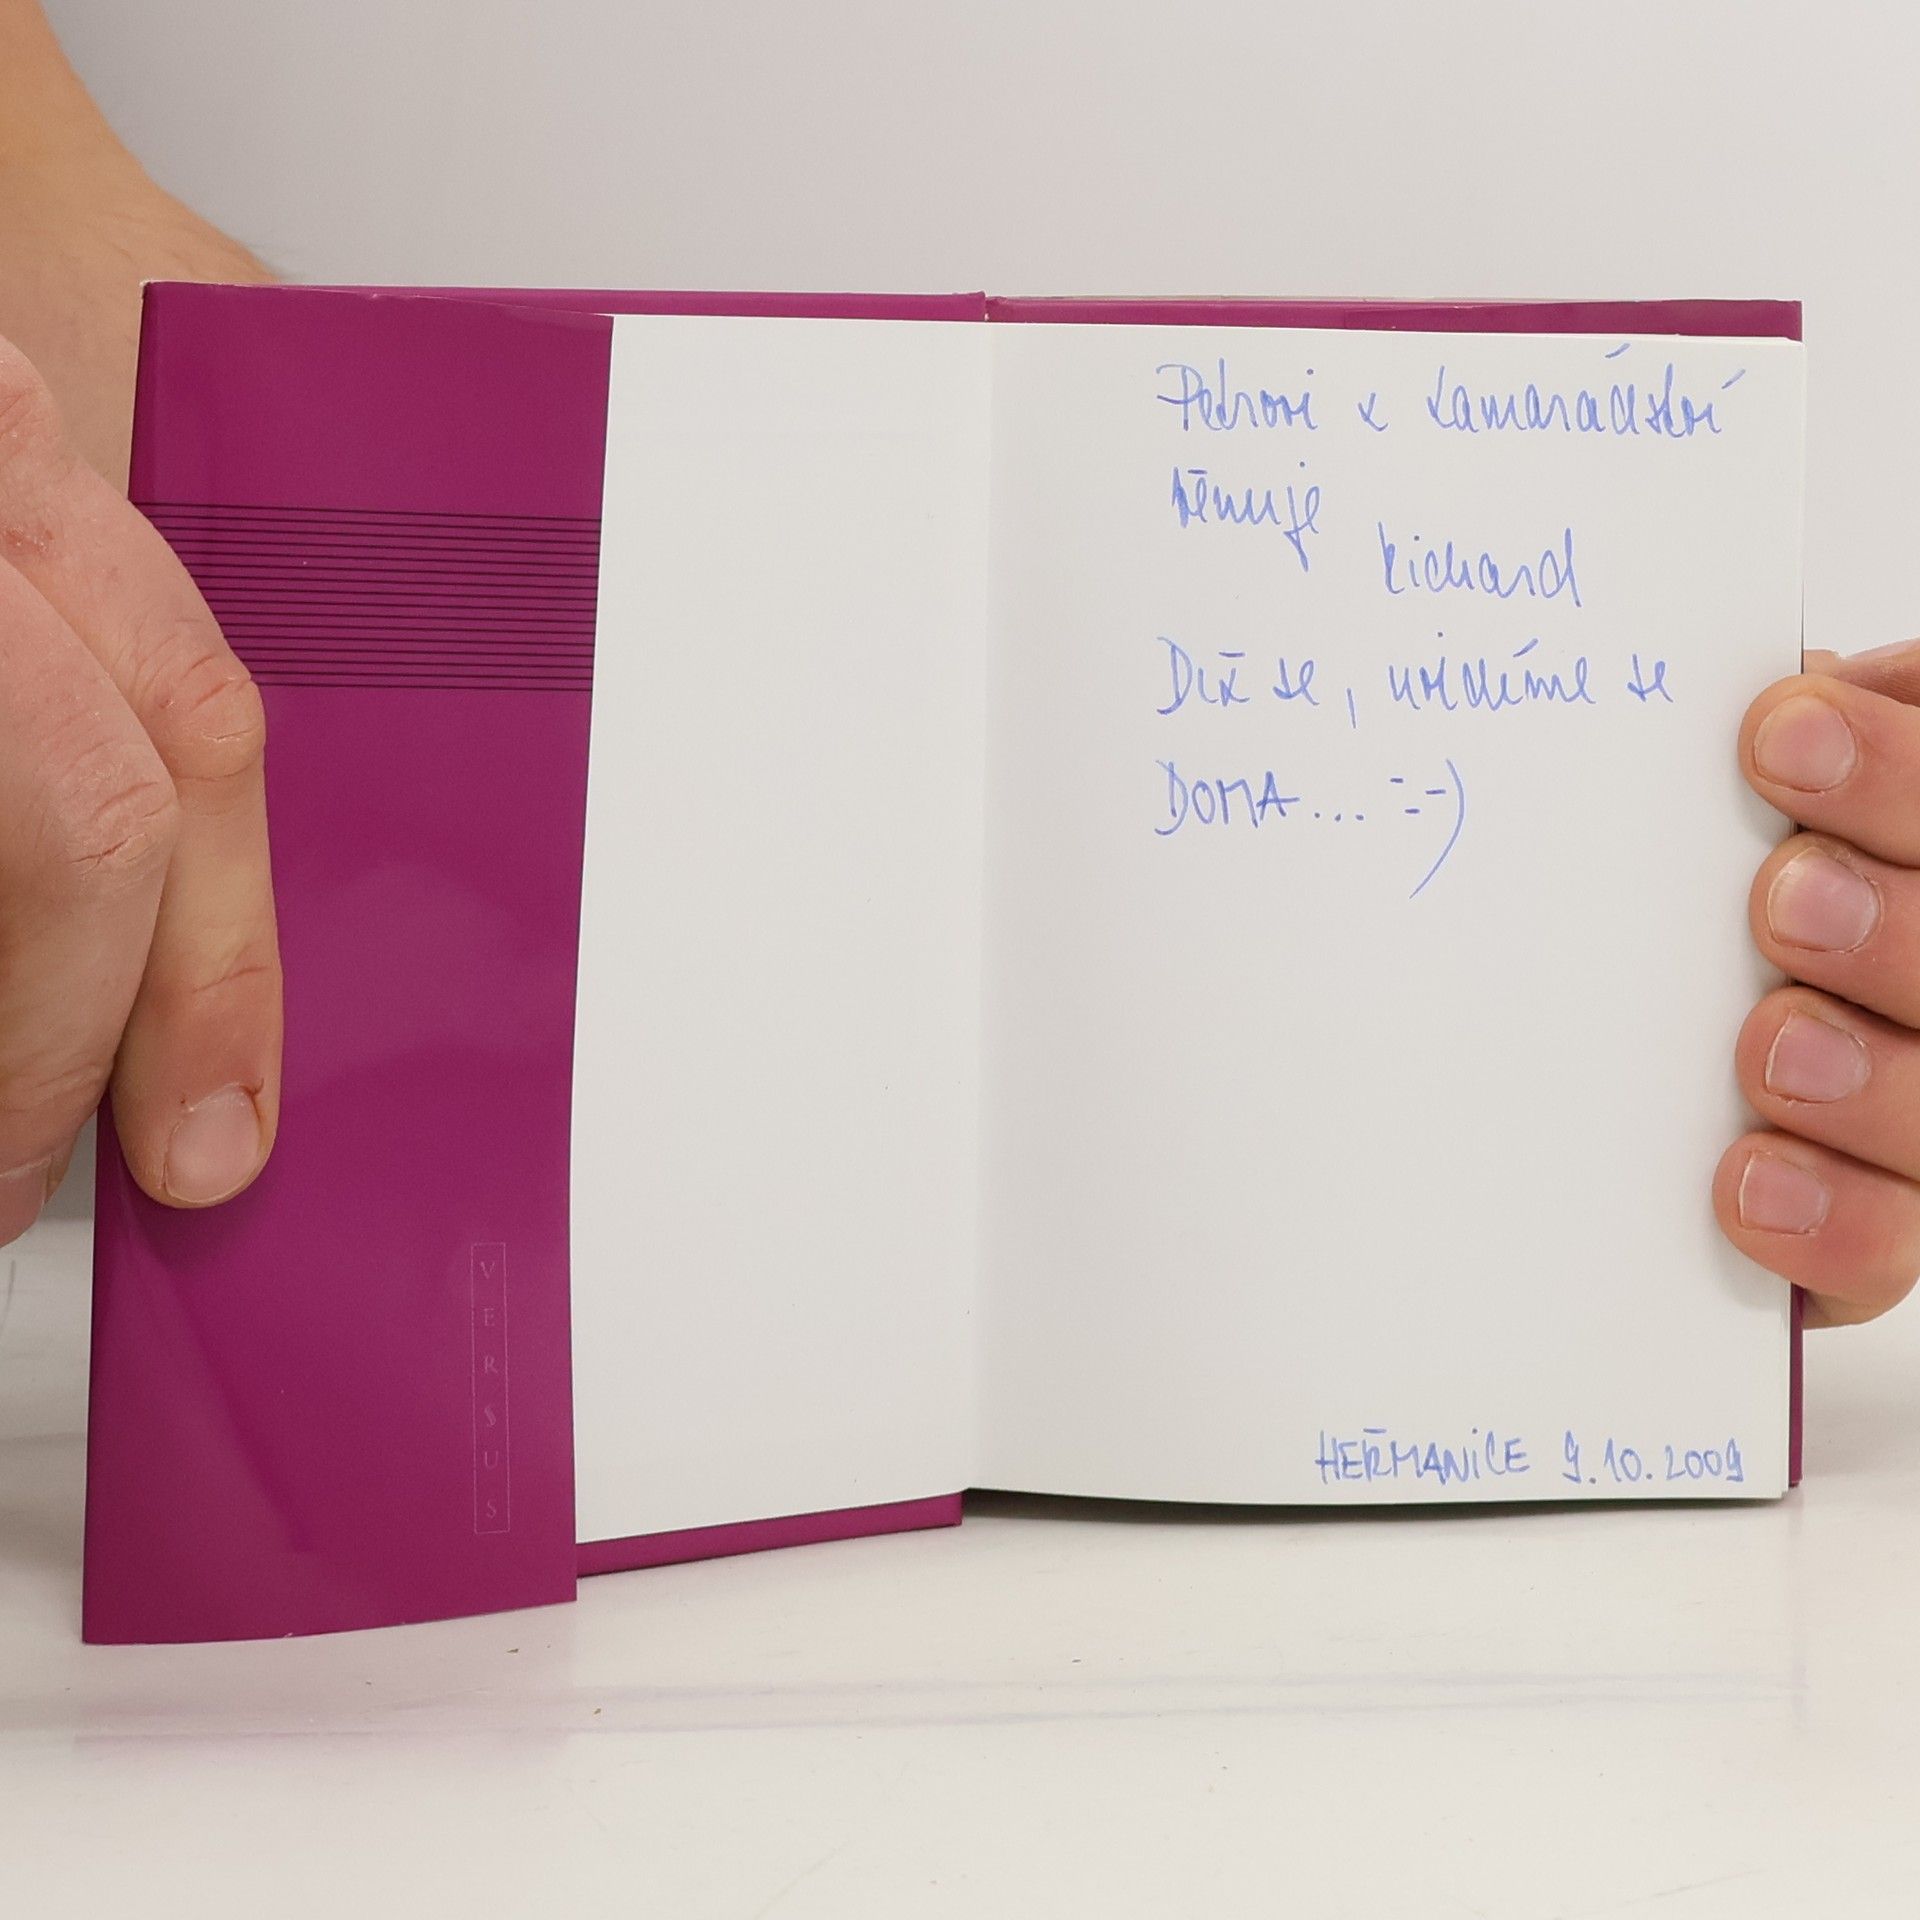 Petrovi k kamarádství
věnuje
Richard
Drž se, uvidíme se
DOMA... =-)
HEŘMANICE 9.10.2009
VERSUS